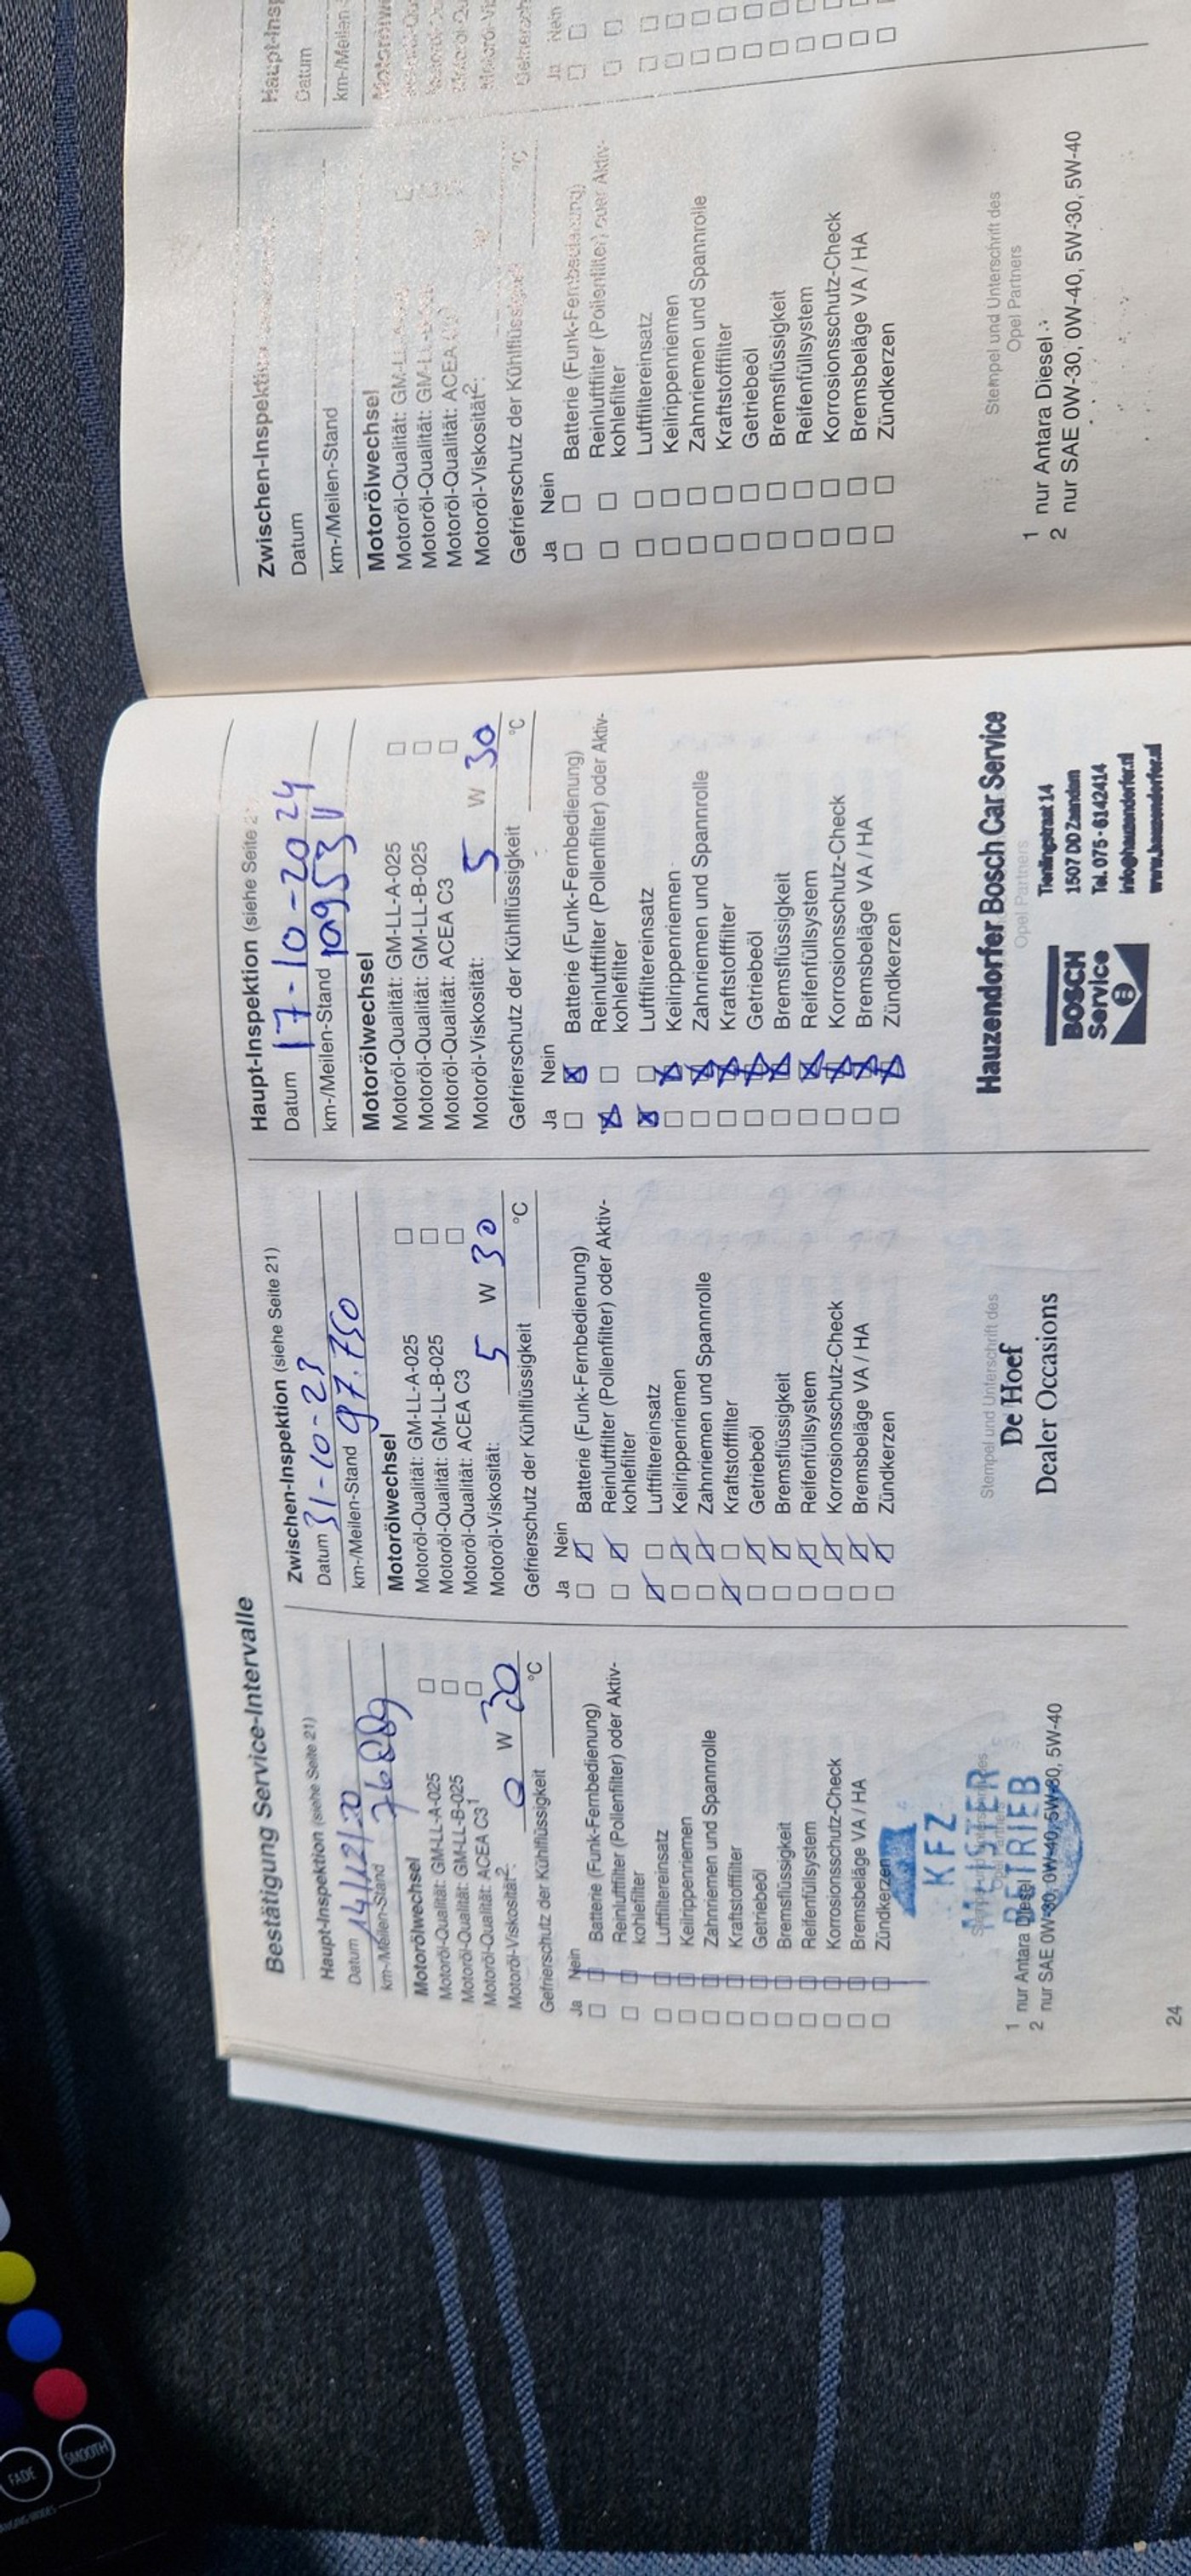 Bestätigung Service-Intervalle
Haupt-Inspektion (siehe Seite 21)
Datum 14/12/20
km-/Meilen-Stand
Motorölwechsel
Motoröl-Qualität: GM-LL-A-025 ☐
Motoröl-Qualität: GM-LL-B-025 ☐
Motoröl-Qualität: ACEA C3¹ ☐
Motoröl-Viskosität²: 0 W 30
Gefrierschutz der Kühlflüssigkeit °C
Ja Nein
Batterie (Funk-Fernbedienung)
Reinluftfilter (Pollenfilter) oder Aktiv-
kohlefilter
Luftfiltereinsatz
Keilrippenriemen
Zahnriemen und Spannrolle
Kraftstofffilter
Getriebeöl
Bremsflüssigkeit
Reifenfüllsystem
Korrosionsschutz-Check
Bremsbeläge VA / HA
Zündkerzen
KFZ
MEISTER
BETRIEB
1 nur Antara Diesel
2 nur SAE 0W-30, 0W-40, 5W-30, 5W-40
24
Zwischen-Inspektion (siehe Seite 21)
Datum 31-10-23
km-/Meilen-Stand 97.750
Motorölwechsel
Motoröl-Qualität: GM-LL-A-025 ☐
Motoröl-Qualität: GM-LL-B-025 ☐
Motoröl-Qualität: ACEA C3 ☐
Motoröl-Viskosität: 5 W 30
Gefrierschutz der Kühlflüssigkeit °C
Ja Nein
Batterie (Funk-Fernbedienung)
Reinluftfilter (Pollenfilter) oder Aktiv-
kohlefilter
Luftfiltereinsatz
Keilrippenriemen
Zahnriemen und Spannrolle
Kraftstofffilter
Getriebeöl
Bremsflüssigkeit
Reifenfüllsystem
Korrosionsschutz-Check
Bremsbeläge VA / HA
Zündkerzen
Stempel und Unterschrift des
De Hoef
Dealer Occasions
Haupt-Inspektion (siehe Seite 2
Datum 17-10-2024
km-/Meilen-Stand 10953
Motorölwechsel
Motoröl-Qualität: GM-LL-A-025 ☐
Motoröl-Qualität: GM-LL-B-025 ☐
Motoröl-Qualität: ACEA C3 ☐
Motoröl-Viskosität: 5 W 30
Gefrierschutz der Kühlflüssigkeit °C
Ja Nein
Batterie (Funk-Fernbedienung)
Reinluftfilter (Pollenfilter) oder Aktiv-
kohlefilter
Luftfiltereinsatz
Keilrippenriemen
Zahnriemen und Spannrolle
Kraftstofffilter
Getriebeöl
Bremsflüssigkeit
Reifenfüllsystem
Korrosionsschutz-Check
Bremsbeläge VA / HA
Zündkerzen
Hauzendorfer Bosch Car Service
Opel Partners
BOSCH
Service
1507 DD Zaandam
Tel. 075 - 6142414
info@hauzendorfer.nl
www.hauzendorfer.nl
Zwischen-Inspektion
Datum
km-/Meilen-Stand
Motorölwechsel
Motoröl-Qualität: GM-LL
Motoröl-Qualität: GM-LL
Motoröl-Qualität: ACEA
Motoröl-Viskosität²: W
Gefrierschutz der Kühlflüssigkeit °C
Ja Nein
Batterie (Funk-Fernbedienung)
Reinluftfilter (Pollenfilter) oder Aktiv-
kohlefilter
Luftfiltereinsatz
Keilrippenriemen
Zahnriemen und Spannrolle
Kraftstofffilter
Getriebeöl
Bremsflüssigkeit
Reifenfüllsystem
Korrosionsschutz-Check
Bremsbeläge VA / HA
Zündkerzen
Stempel und Unterschrift des
Opel Partners
1 nur Antara Diesel
2 nur SAE 0W-30, 0W-40, 5W-30, 5W-40
Haupt-Insp
Datum
km-/Meilen-
Motorölwe
Ja Nein
FADE
SMOOTH